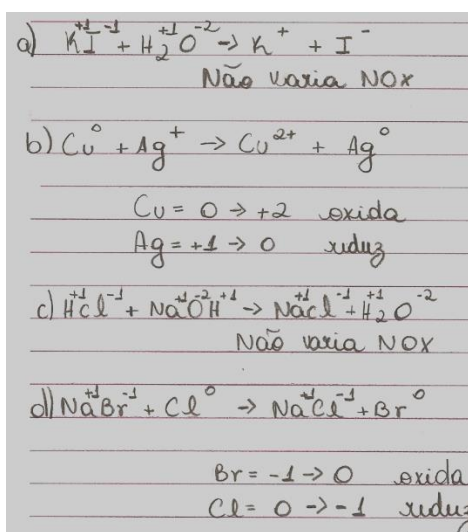 a) K⁺¹I⁻¹ + H₂⁺¹O⁻² → K⁺ + I⁻
Não varia NOX
b) Cu⁰ + Ag⁺ → Cu²⁺ + Ag⁰
Cu = 0 → +2 oxida
Ag = +1 → 0 reduz
c) H⁺¹Cl⁻¹ + Na⁺¹O⁻²H⁺¹ → Na⁺¹Cl⁻¹ + H₂⁺¹O⁻²
Não varia NOX
d) Na⁺¹Br⁻¹ + Cl⁰ → Na⁺¹Cl⁻¹ + Br⁰
Br = -1 → 0 oxida
Cl = 0 → -1 reduz